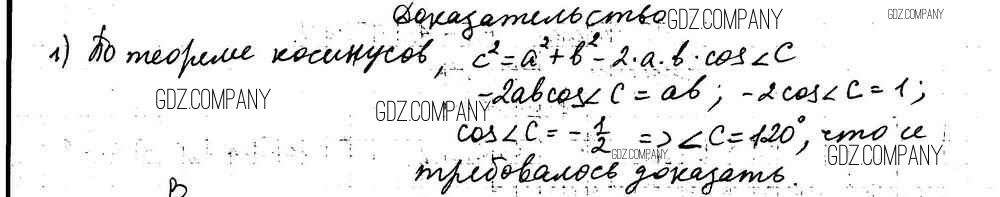 Доказательство GDZ.COMPANY GDZ.COMPANY
1) По теореме косинусов, c² = a² + b² - 2·a·b·cos∠C
GDZ.COMPANY GDZ.COMPANY -2abcos∠C = ab; -2cos∠C = 1;
cos∠C = -1/2 => ∠C = 120°, что и
GDZ.COMPANY GDZ.COMPANY
требовалось доказать.
B